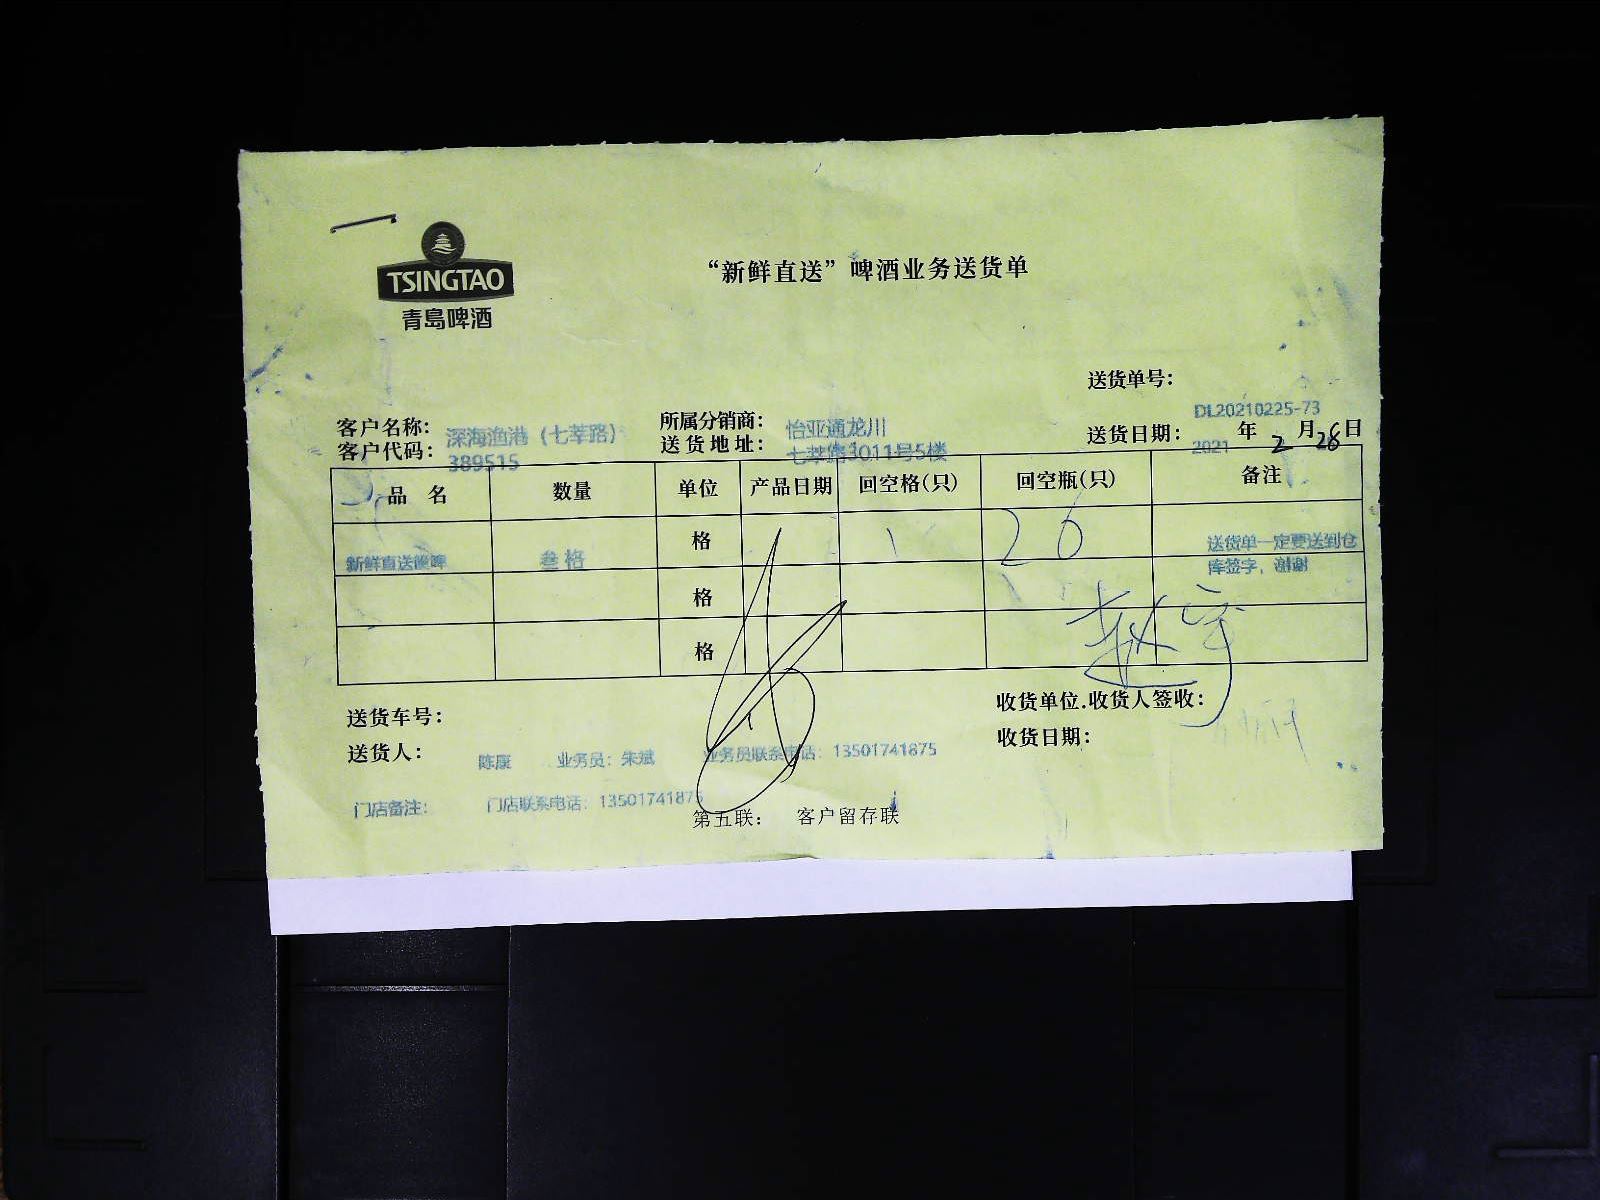 TSINGTAO
青島啤酒
“新鲜直送”啤酒业务送货单
送货单号：
DL20210225-73
客户名称： 深海渔港（七莘路） 所属分销商： 怡亚通龙川 送货日期： 2021 年 2 月 28 日
客户代码： 389515 送货地址： 七莘路3011号5楼
品 名 数量 单位 产品日期 回空格(只) 回空瓶(只) 备注
新鲜直送 叁格 格 1 26 送货单一定要送到仓
库签字，谢谢
格
格
送货车号： 收货单位.收货人签收：
送货人： 陈康 业务员：朱斌 业务员联系电话：13501741875 收货日期：
门店备注： 门店联系电话：13501741875
第五联： 客户留存联